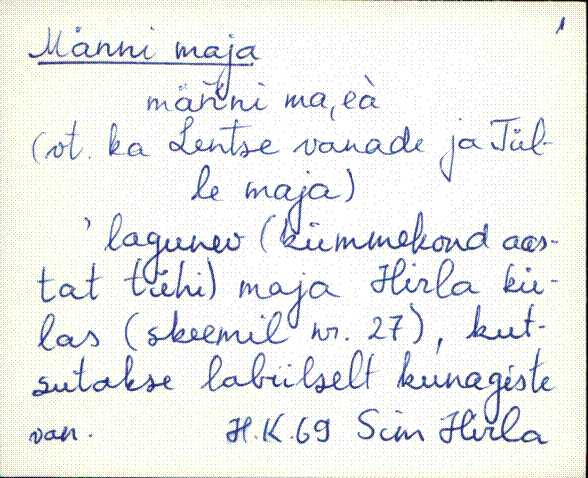 1
Männi maja
männi ma,eà
(vt. ka Lentse vanade ja Tül-
le maja)
' lagunev (kümmekond aas-
tat tühi) maja Hirla kü-
las (skeemil nr. 27), kut-
sutakse labiilselt kunagiste
van. H.K.69 Sim Hirla